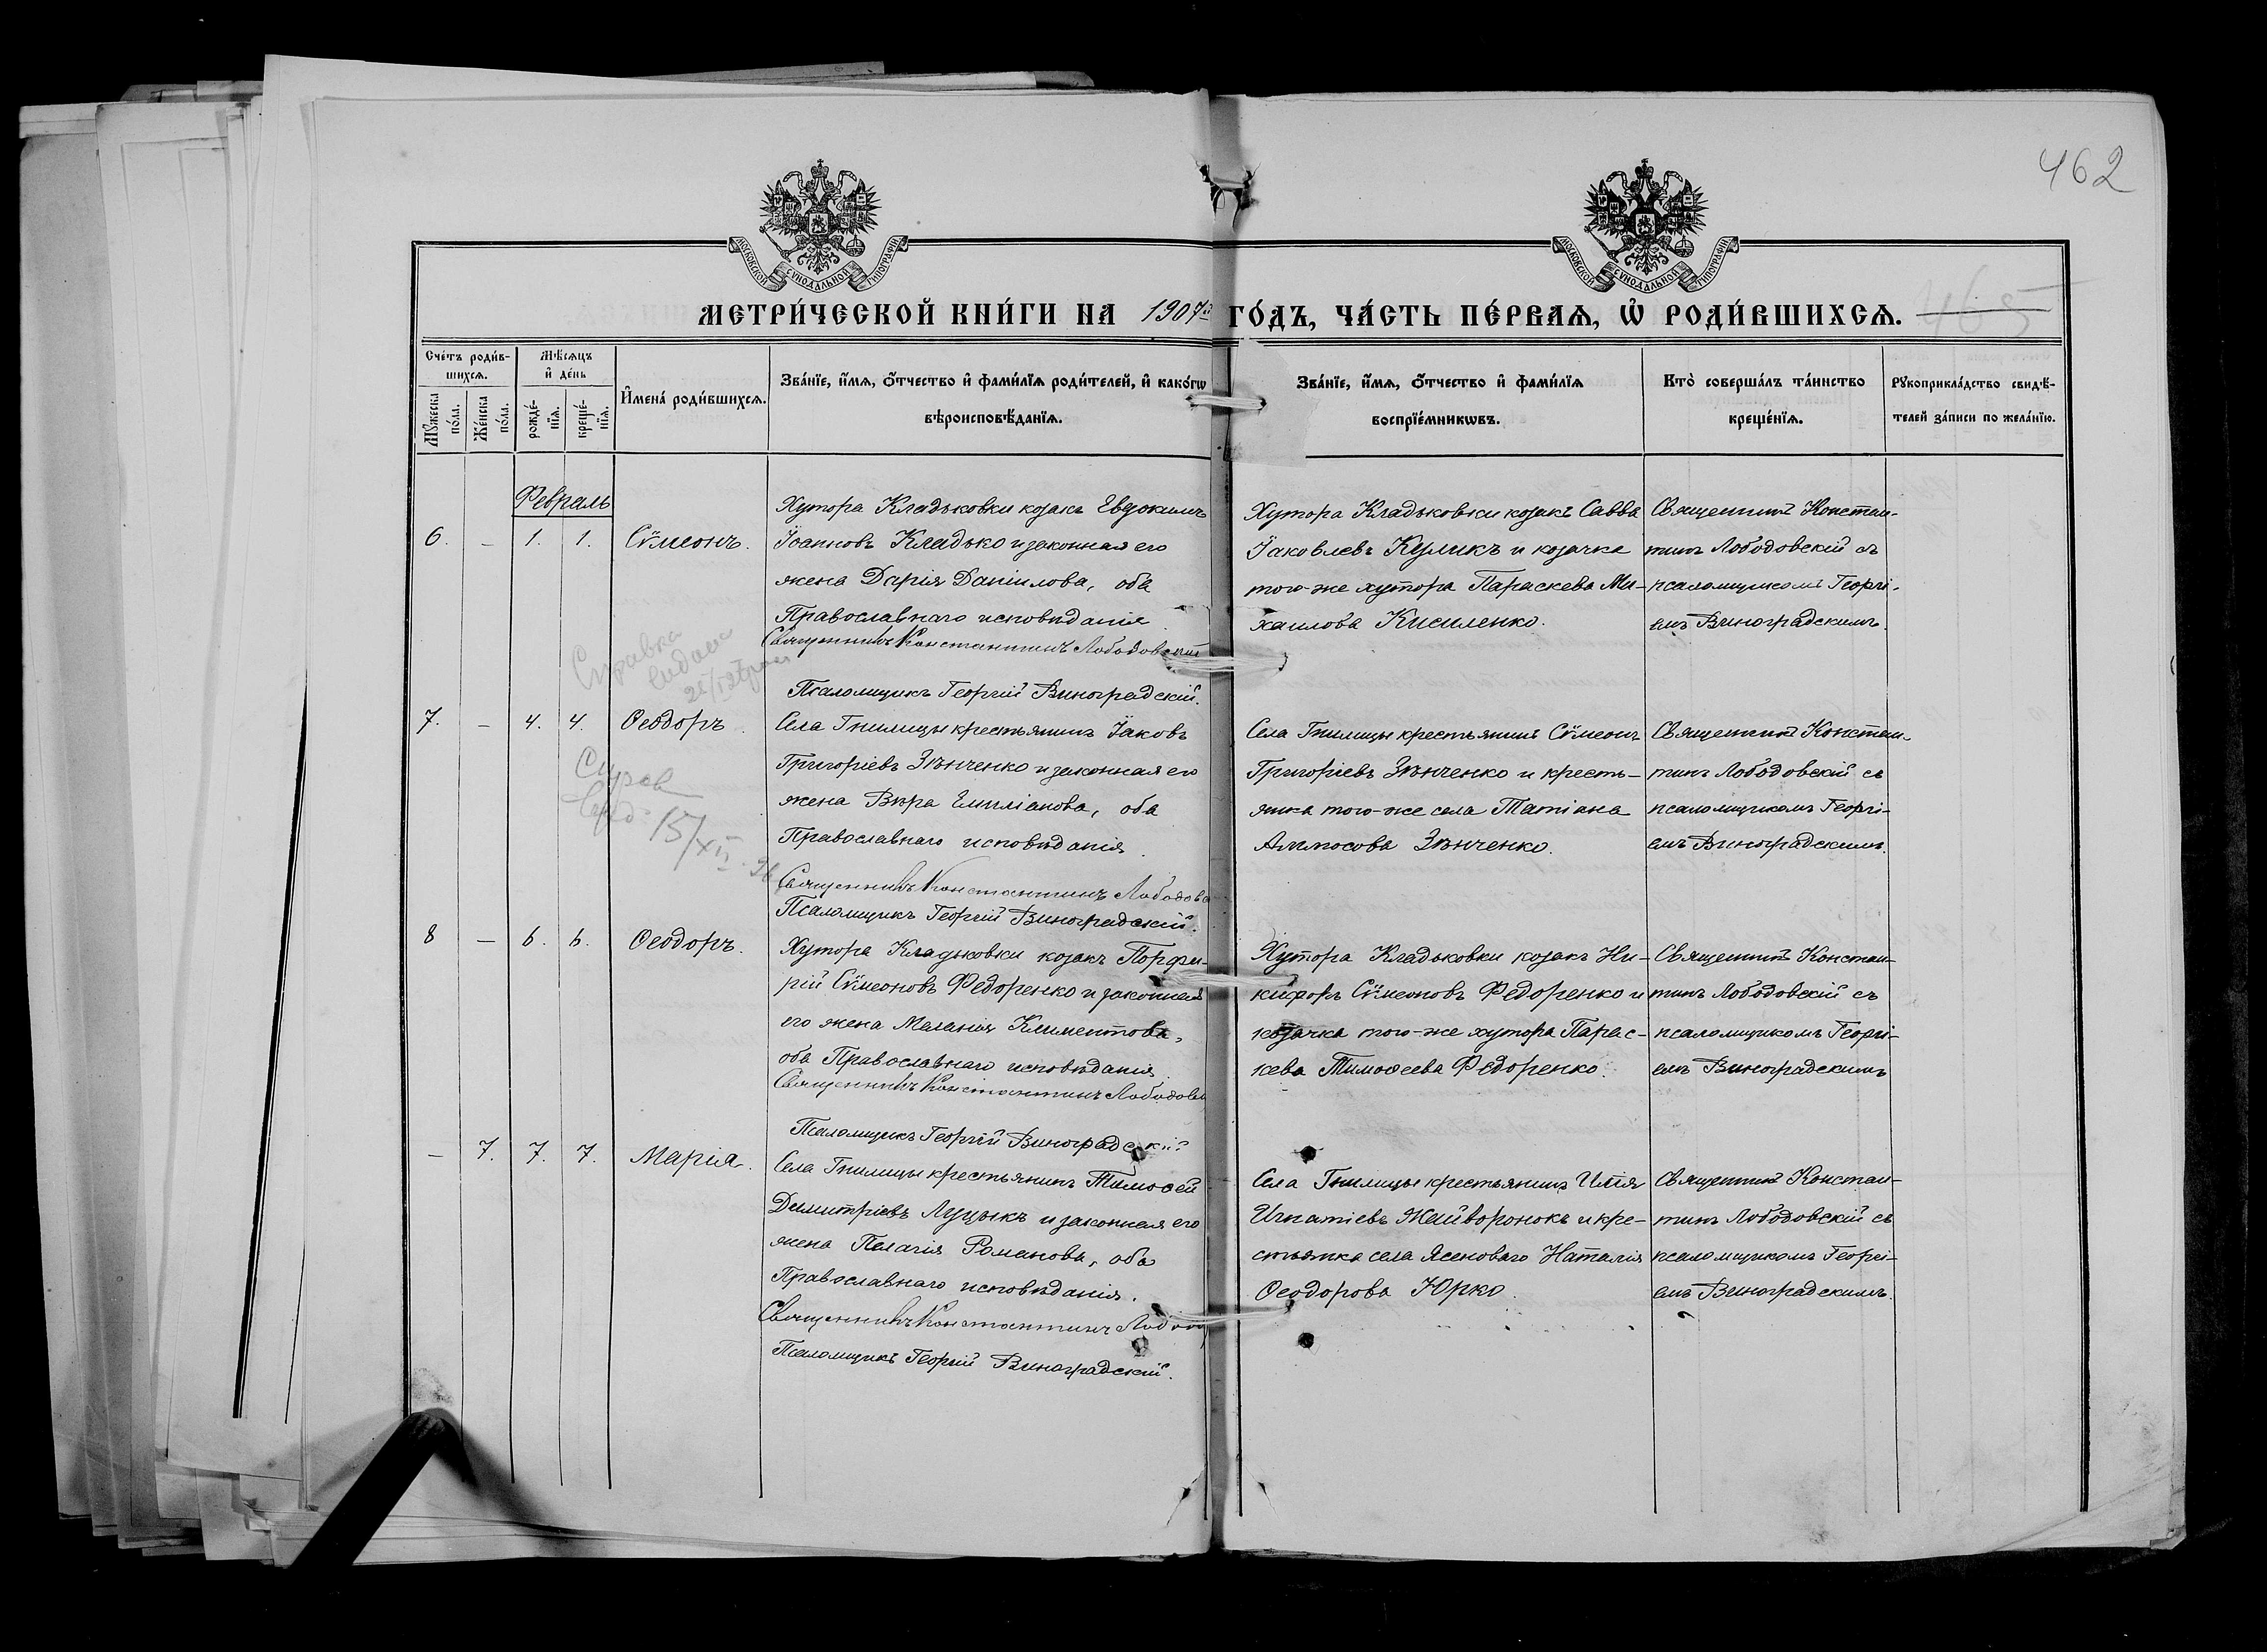 462
МОСКОВСКОЙ СѴНОДАЛЬНОЙ ТИПОГРАФІИ
МОСКОВСКОЙ СѴНОДАЛЬНОЙ ТИПОГРАФІИ
МЕТРИ́ЧЕСКОЙ КНИ́ГИ НА 1907й ГО́ДЪ, ЧА́СТЬ ПЕ́РВАѦ, Ѡ҆ РОДИ́ВШИХСѦ.
465
Сче́тъ роди́в-
шихсѧ.
Мꙋ́жеска по́ла.
Же́нска по́ла.
Мѣ́сѧцъ
и҆ де́нь
рожде́-
нїѧ.
креще́-
нїѧ.
И҆мена́ роди́вшихсѧ.
Зва́нїе, и҆́мѧ, ѻ҆́тчество и҆ фами́лїѧ роди́телей, и҆ како́гѡ
вѣроисповѣ́данїѧ.
Зва́нїе, и҆́мѧ, ѻ҆́тчество и҆ фами́лїѧ
воспрїе́мникѡвъ.
Кто̀ соверша́лъ та́инство
креще́нїѧ.
Рꙋкоприкла́дство свидѣ́-
телей за́писи по жела́нїю.
Февраль
6. – 1. 1. Сѵмеонъ.
Хутора Кладьковки козакъ Евдокимъ
Іоанновъ Кладько и законная его
жена Дарія Даніилова, оба
Православнаго исповѣданія
Священникъ Константинъ Лободовский
Псаломщикъ Георгій Виноградскій.
Хутора Кладьковки козакъ Савва
Іаковлевъ Куликъ и козачка
того-же хутора Параскева Ми-
хаилова Кисиленко.
Священникъ Констан-
тинъ Лободовскій съ
псаломщикомъ Георгі-
емъ Виноградскимъ.
Справка
видана
7. – 4. 4. Ѳеодоръ.
Села Гнилицы крестьянинъ Іаковъ
Григоріевъ Зѣнченко и законная его
жена Вѣра Емиліанова, оба
Православнаго исповѣданія.
Священникъ Константинъ Лободовс
Псаломщикъ Георгій Виноградскій.
Села Гнилицы крестьянинъ Сѵмеонъ
Григоріевъ Зѣнченко и кресть-
янка того-же села Татіана
Аммосова Зѣнченко.
Священникъ Констан-
тинъ Лободовскій съ
псаломщикомъ Георгі-
емъ Виноградскимъ.
15/XII
8 – 6. 6. Ѳеодоръ.
Хутора Кладьковки козакъ Порфи-
рій Сѵмеоновъ Федоренко и законная
его жена Маланія Климентова,
оба Православнаго исповѣданія.
Священникъ Константинъ Лободовс
Псаломщикъ Георгій Виноградскій
Хутора Кладьковки козакъ Ни-
кифоръ Сѵмеоновъ Федоренко и
козачка того-же хутора Парас-
кева Тимоѳеева Федоренко.
Священникъ Констан-
тинъ Лободовскій съ
псаломщикомъ Георгі-
емъ Виноградскимъ
– 7. 7. 7. Марія.
Села Гнилицы крестьянинъ Тимоѳей
Димитріевъ Луцыкъ и законная его
жена Пелагія Романова, оба
Православнаго исповѣданія.
Священникъ Константинъ Лобод
Псаломщикъ Георгій Виноградскій.
Села Гнилицы крестьянинъ Илія
Игнатіевъ Жайворонокъ и кре-
стьянка села Ясеноваго Наталія
Ѳеодорова Юрко.
Священникъ Констан-
тинъ Лободовскій съ
псаломщикомъ Георгі-
емъ Виноградскимъ.